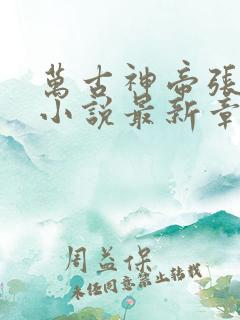 萬古神帝張
小說最新章
周益保
未經同意禁止轉載